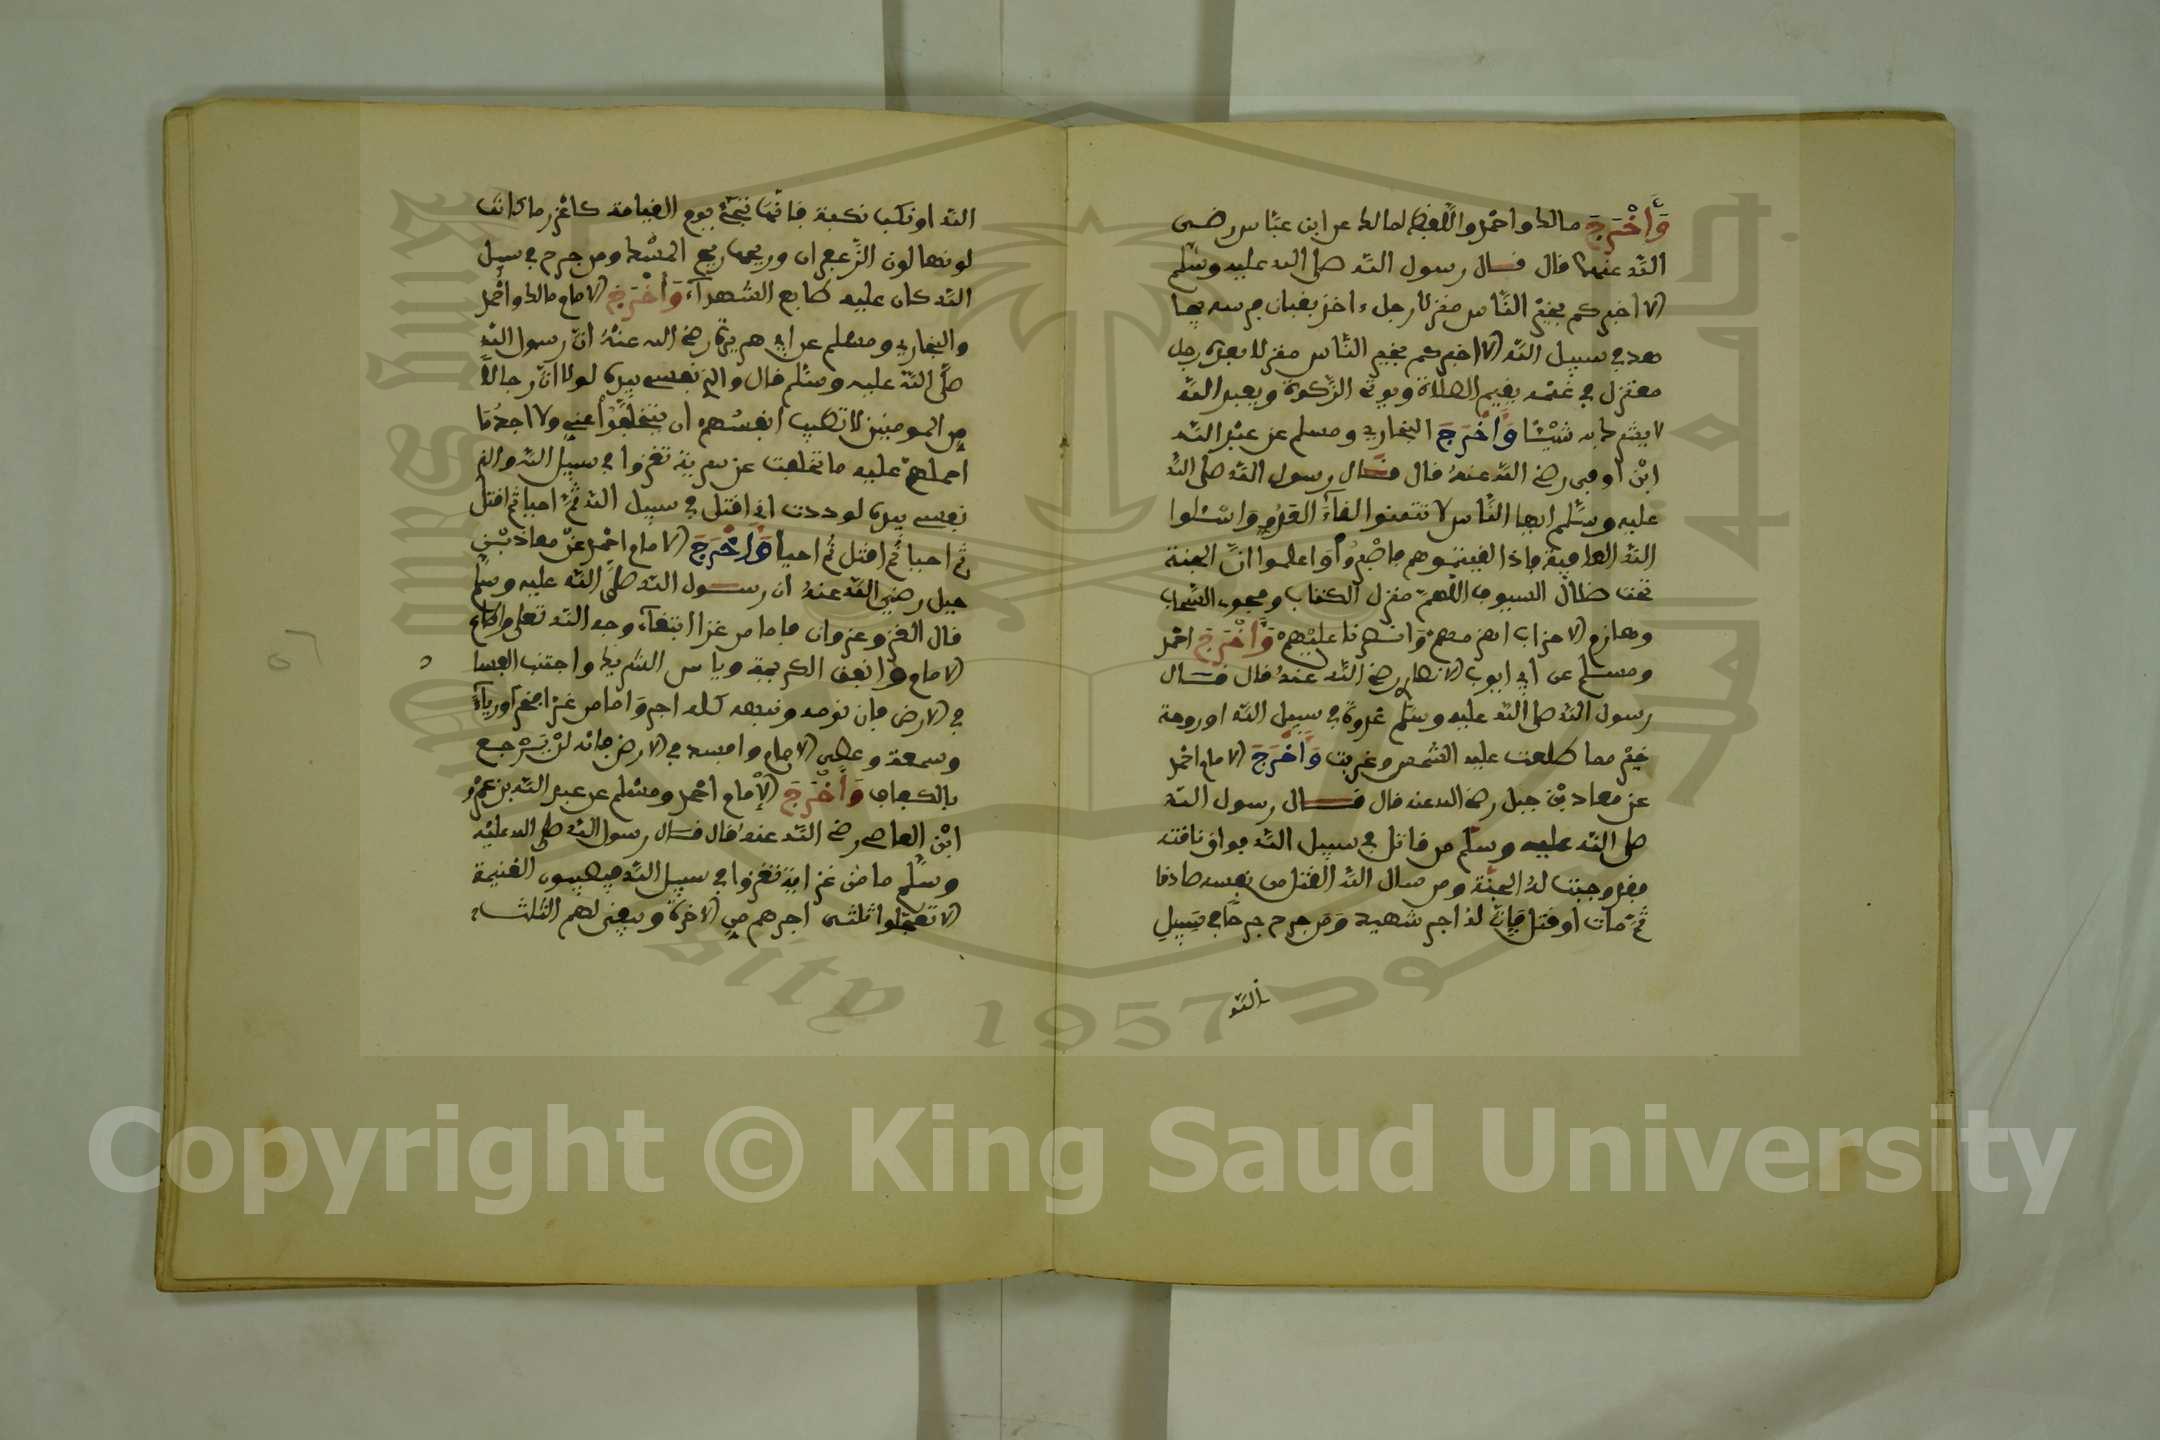 وَأَخْرَجَ مالك واحمد واللفظ لمالك عن ابن عبّاس رضى
الله عنهما قال قال رسول الله صلى الله عليه وسلم
الا اخبركم بخير النّاس منزلا رجل ءاخذ بعنان فرسه يجا
هد في سبيل الله الا اخبركم بخير النّاس منزلا بعده رجل
معتزل في غنمه يقيم الصلاة ويوتي الزكوة ويعبد الله
لا يشرك به شَيْئًا وَأَخْرَجَ البخاري ومسلم عن عبد الله
ابْن أوفى رضي الله عنه قال قال رسول الله صلى الله
عليه وسلم ايها النّاس لا تتمنوا لقآء العَدُوِّ وَاسْئلوا
الله العافية فاذا لقيتموهم فاصْبِرُوا وَاعلموا انّ الجنة
تحت ظلال السيوف اللّهمّ منزل الكتاب ومجرى السّحاب
وهازم الاحزاب اهزمهم وَانصرنا عليْهم وَأَخْرَجَ احمد
ومسلم عن أبي ايوب الانصاري رضي الله عنه قال قال
رسول الله صلى الله عليه وسلم غدوة في سبيل الله او روحة
خيْر مما طلعت عليه الشمس وغربت وَأَخْرَجَ الامام احمد
عن معاذ بْن جبل رضي الله عنه قال قال رسول الله
صلى الله عليه وسلم من قاتل في سبيل الله فواق ناقته
فقد وجبت لهُ الجنّة ومن سال الله القتل من نفسه صادقا
ثمّ مات أو قتل فإنّ لهُ اجر شهيد وَمن جرح جرحًا في سَبِيلِ
الله
الله او نكب نكبة فانّها تجئ يوم القيامة كاغزر ما كانت
لونها لون الزّعفران وريحها ريح المسْك ومن جرح في سبيل
الله كان عليه طابع الشهدآء وَأَخْرَجَ الامام مالك واحْمد
والبخاري ومسلم عن ابي هريرة رضي الله عنهُ أنّ رسول الله
صلّى الله عليه وسلم قال والذي نفسي بيده لولا انّ رجالاً
من المومنين لا تطيب انفسُهم ان يتخلّفُوا عني ولا اجدُ ما
احملهمْ عليه ما تخلفت عن سرية تغزوا في سبيل الله والذي
نفسي بيده لوددت أني اقتل في سبيل الله ثمّ احيا ثم اقتل
ثم احيا ثُم اقتل ثُم احيا وَأَخْرَجَ الامام احْمد عنْ معاذ بْن
جبل رضي الله عنهُ ان رسول الله صلّى الله عليه وسلم
قال الغزو غزوان فاما من غزا ابتغآء وجه الله تعلى واطاع
الامام وانفق الكريمة وياسر الشريك واجتنب الفسا
في الارض فإن نومه ونبهه كله اجر وَاما من غزا فخرًا ورياءً
وسمعة وعصى الامام وافسد في الارض فانه لنْ يرْجع
بالكفاف وَأَخْرَجَ الإمام احمد ومسْلم عن عبد الله بن عمْرو
ابْن العاصى رضي الله عنه قال قال رسول الله صلى الله عليْه
وسلم ما من غزاية تغزوا في سبيل الله فيصيبون الغنيمة
الا تعجّلوا ثلثى اجرهم من الاخرة ويبقى لهم الثلث
Copyright © King Saud University
1957